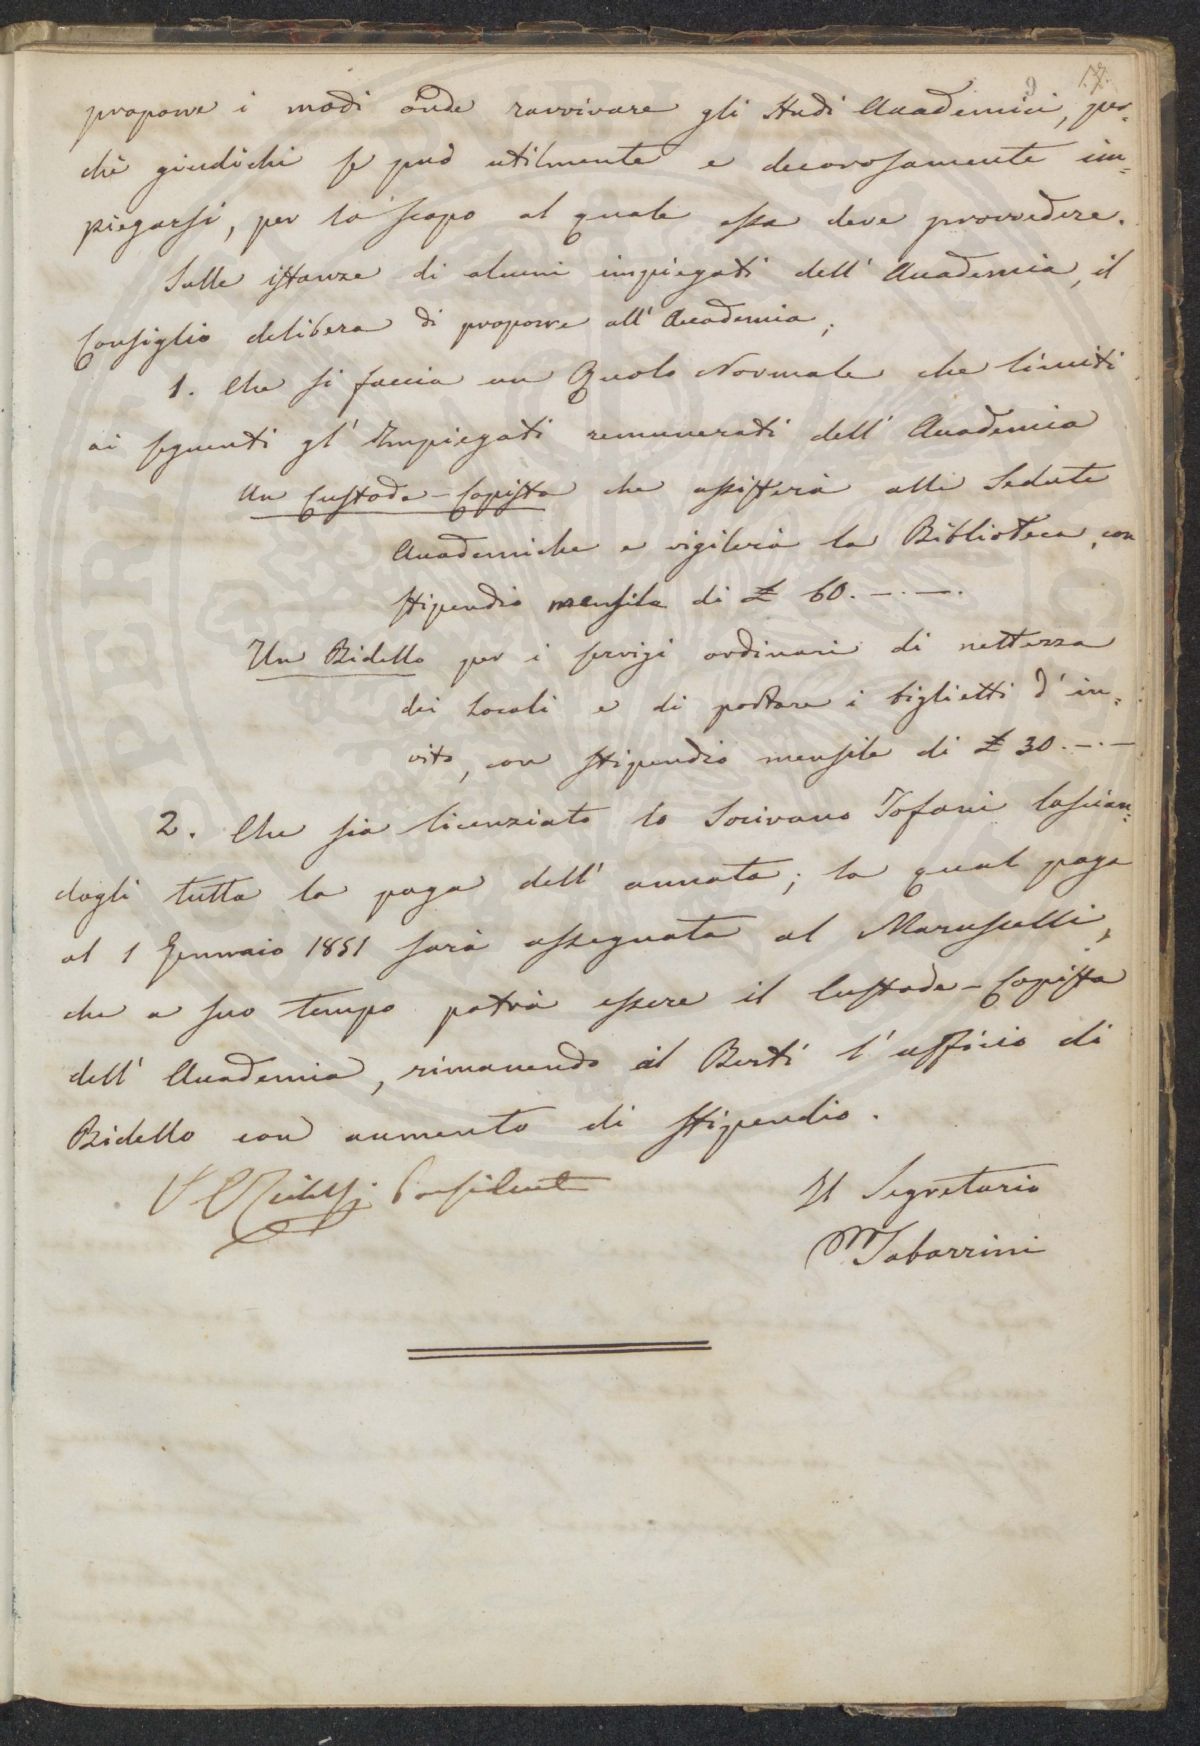 9 17.
proporre i modi onde ravvivare gli Studi Accademici, per=
chè giudichi se può utilmente e decorosamente im=
piegarsi, per lo scopo al quale essa deve provvedere.
Sulle istanze di alcuni impiegati dell' Accademia, il
Consiglio delibera di proporre all' Accademia;
1. Che si faccia un Ruolo Normale che limiti
ai seguenti gl' Impiegati remunerati dell' Accademia
Un Custode-Copista che assisterà alle Sedute
Accademiche e vigilerà la Biblioteca, con
stipendio mensile di £ 60.—.—.
Un Bidello per i servigi ordinari di nettezza
dei Locali e di portare i biglietti d' in=
vito, con stipendio mensile di £ 30.—.—
2. Che sia licenziato lo Scrivano Tofani lascian=
dogli tutta la paga dell' annata; la qual paga
al 1 Gennaio 1851 sarà assegnata al Maruscelli,
che a suo tempo potrà essere il Custode-Copista
dell' Accademia, rimanendo al Berti l' ufficio di
Bidello con aumento di stipendio.
Presidente
Il Segretario
M. Tabarrini